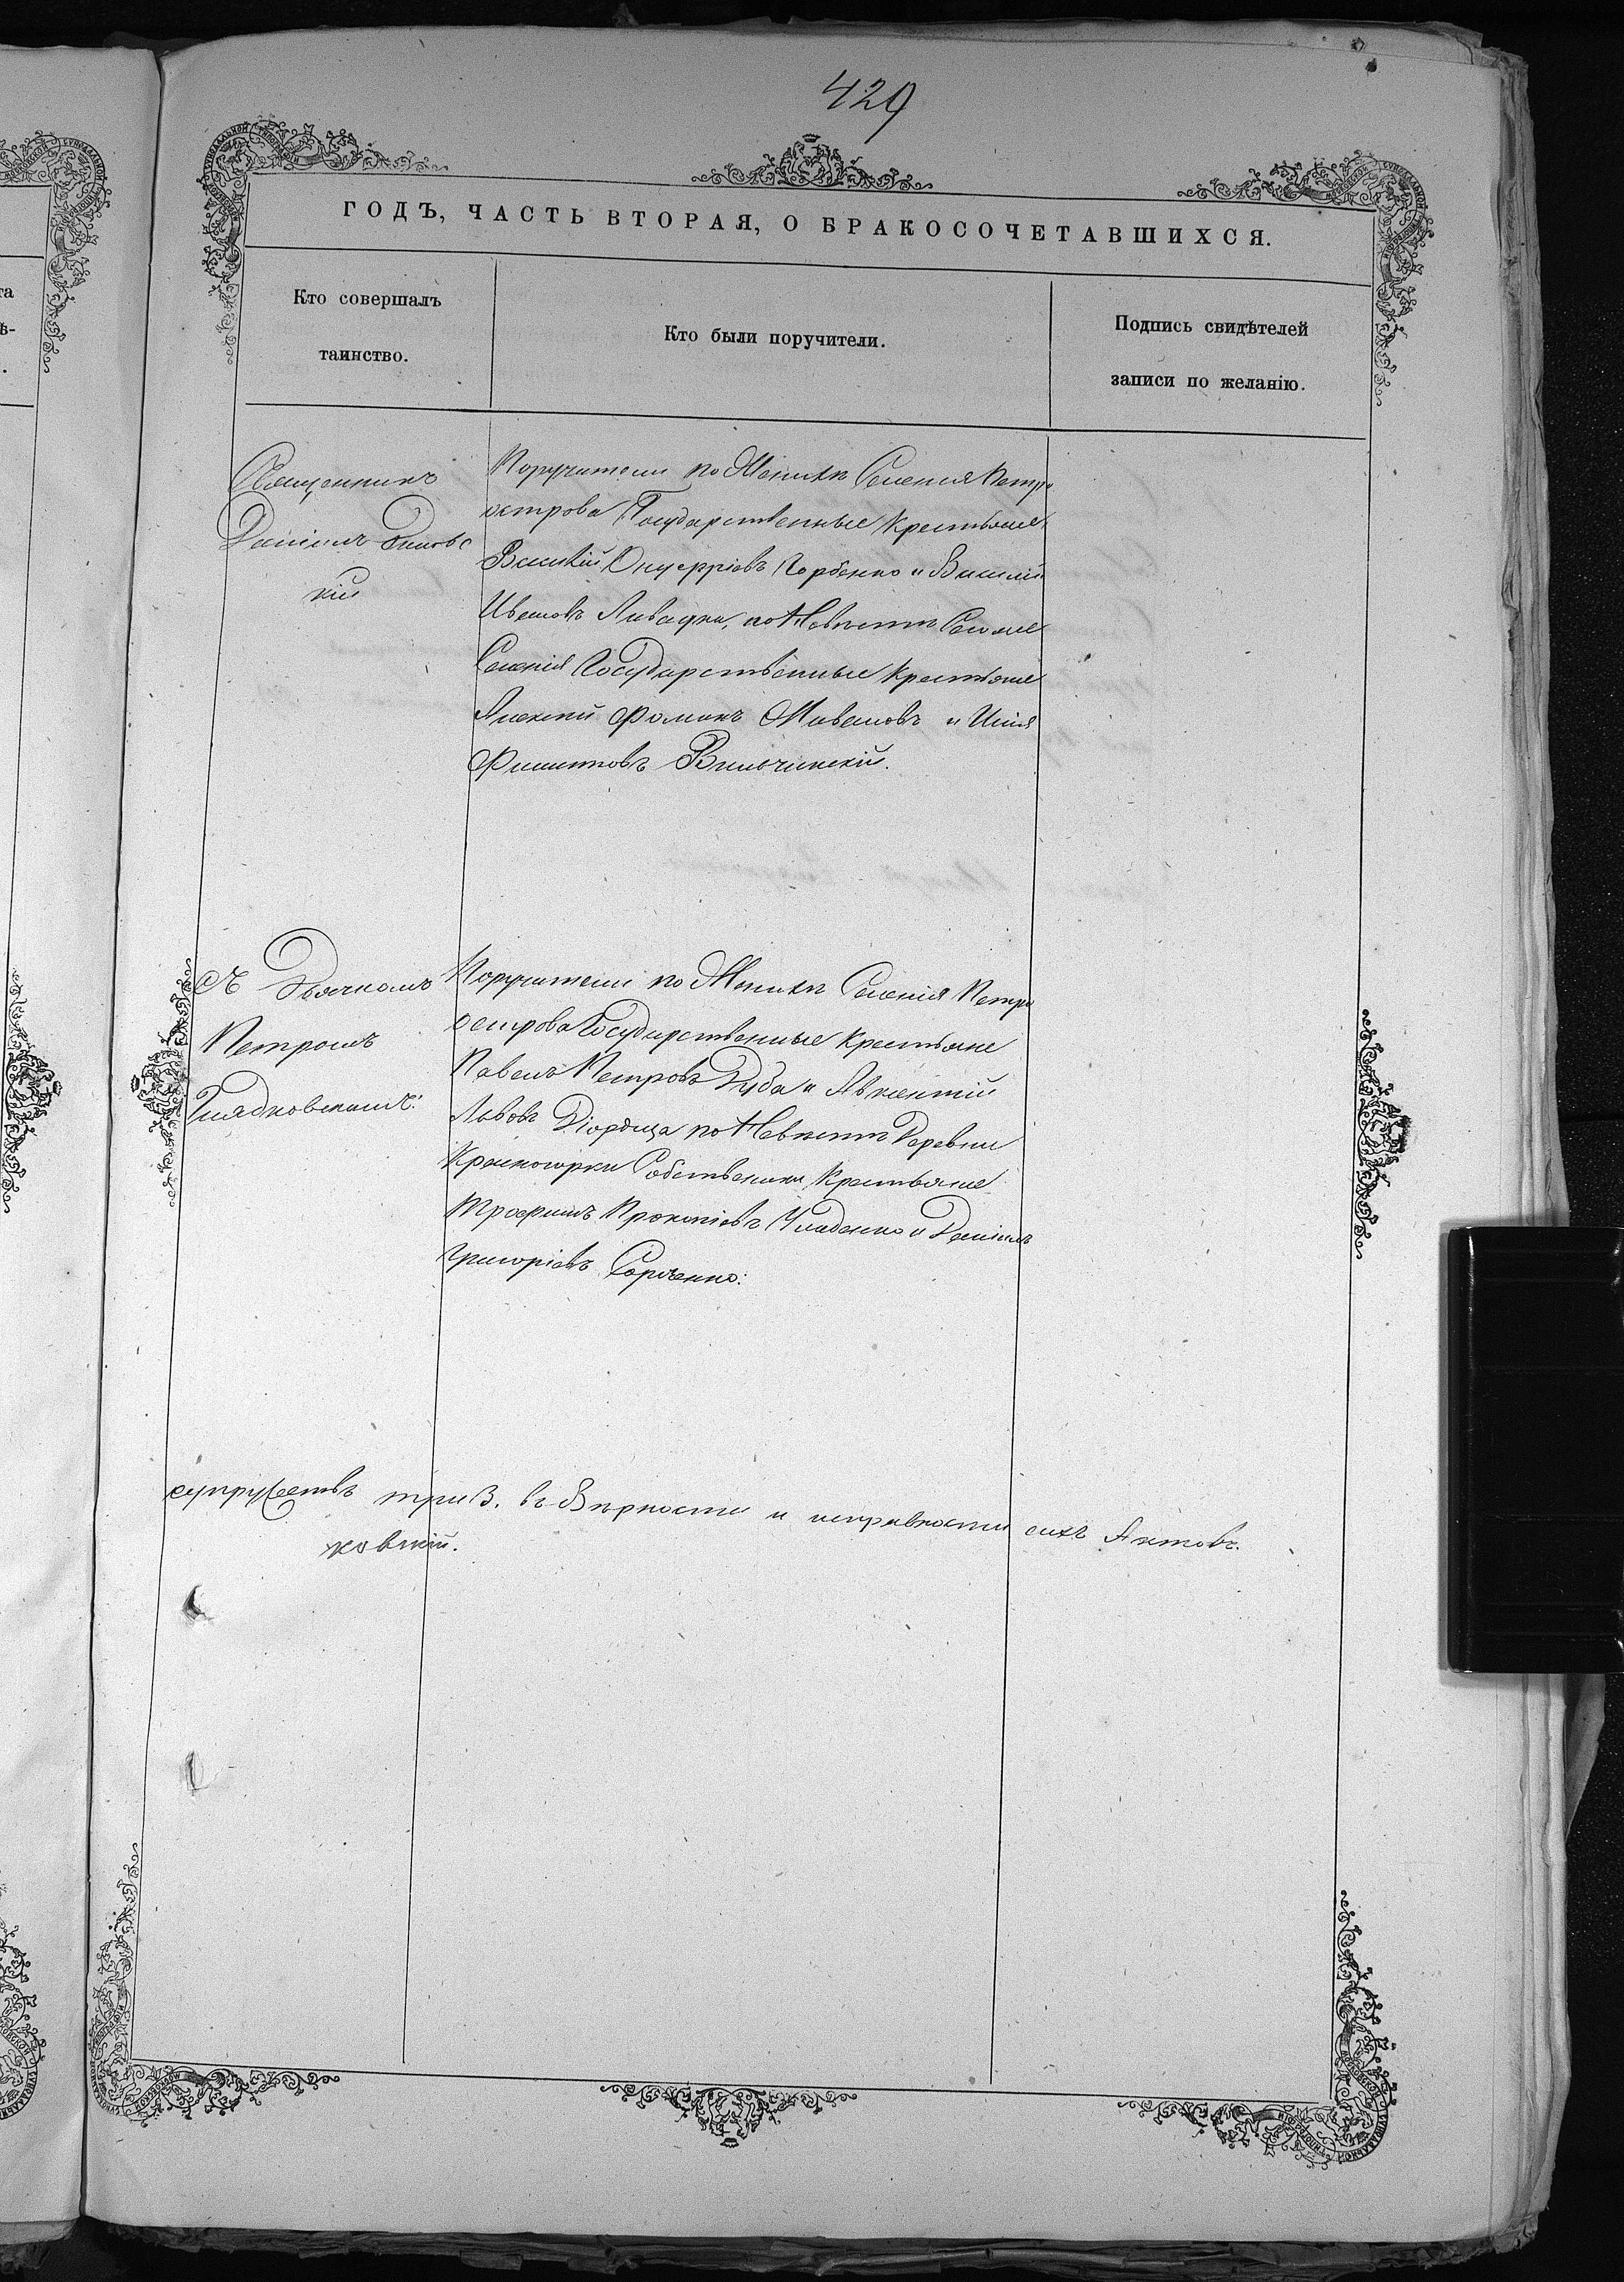 429
ГОДЪ, ЧАСТЬ ВТОРАЯ, О БРАКОСОЧЕТАВШИХСЯ.
Кто совершалъ
таинство.
Кто были поручители.
Подпись свидѣтелей
записи по желанію.
Священникъ
Даніилъ
кій
Поручители по Женихѣ Селенія Петро
острова Государственные Крестьяне
Василій Онуфріевъ Горбенко и Василій
Ивановъ Ливадка, по Невѣстѣ
Селенія Государственные Крестьяне
Алексѣй Фоминъ и Илія
Филиповъ Вильчинскій.
Съ Дьячкомъ
Петромъ
Гладковскимъ:
Поручители по Женихѣ Селенія Петро
острова Государственные Крестьяне
Павелъ Петровъ Дуба и Авксентій
Львовъ Діордица по Невѣстѣ Деревни
Красногорки Собственики Крестьяне
Трофимъ Прокопіевъ и Даніилъ
Григоріевъ
супружествъ три 3. въ Вѣрности и исправности сихъ Актовъ.
ковскій.